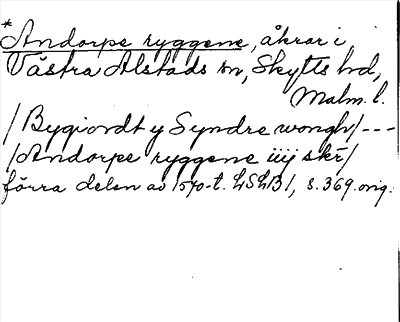 *
Andorpe ryggene, åkrar i
Västra Alstads sn, Skytts hd,
Malm. l.
/Bygiordt y Syndre wongh/---
/Andorpe ryggene iiij skr/
förra delen av 1570-t. LSLB1, s. 369. orig.